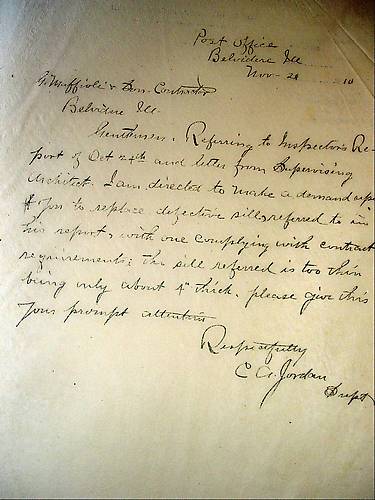 Post Office
Belvidere Ill
Nov- 28 10
G. Muffioli & Son Contractor
Belvidere Ill.
Gentlemen. Referring to Inspectors Re-
port of Oct 24th and letter from Supervising
Architect. I am directed to make a demand
you to replace defective sills referred to in
his report, with one complying with contract
requirements: the sill referred is too thin
being only about 4" thick. please give this
your prompt attention
Respectfully
C A. Jordan
Supt